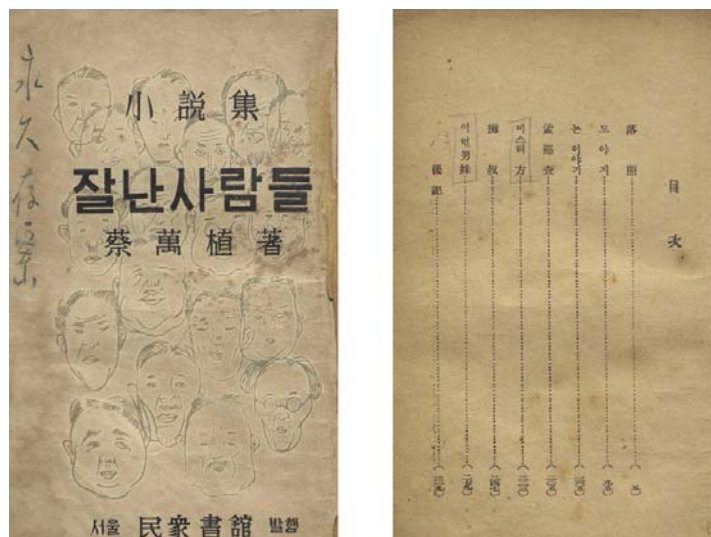 小說集
잘난사람들
蔡萬植著
永久存
서울 民衆書館 발행
目次
落照
도야지
논이야기
孟巡査
미스터方
이런男妹
後記